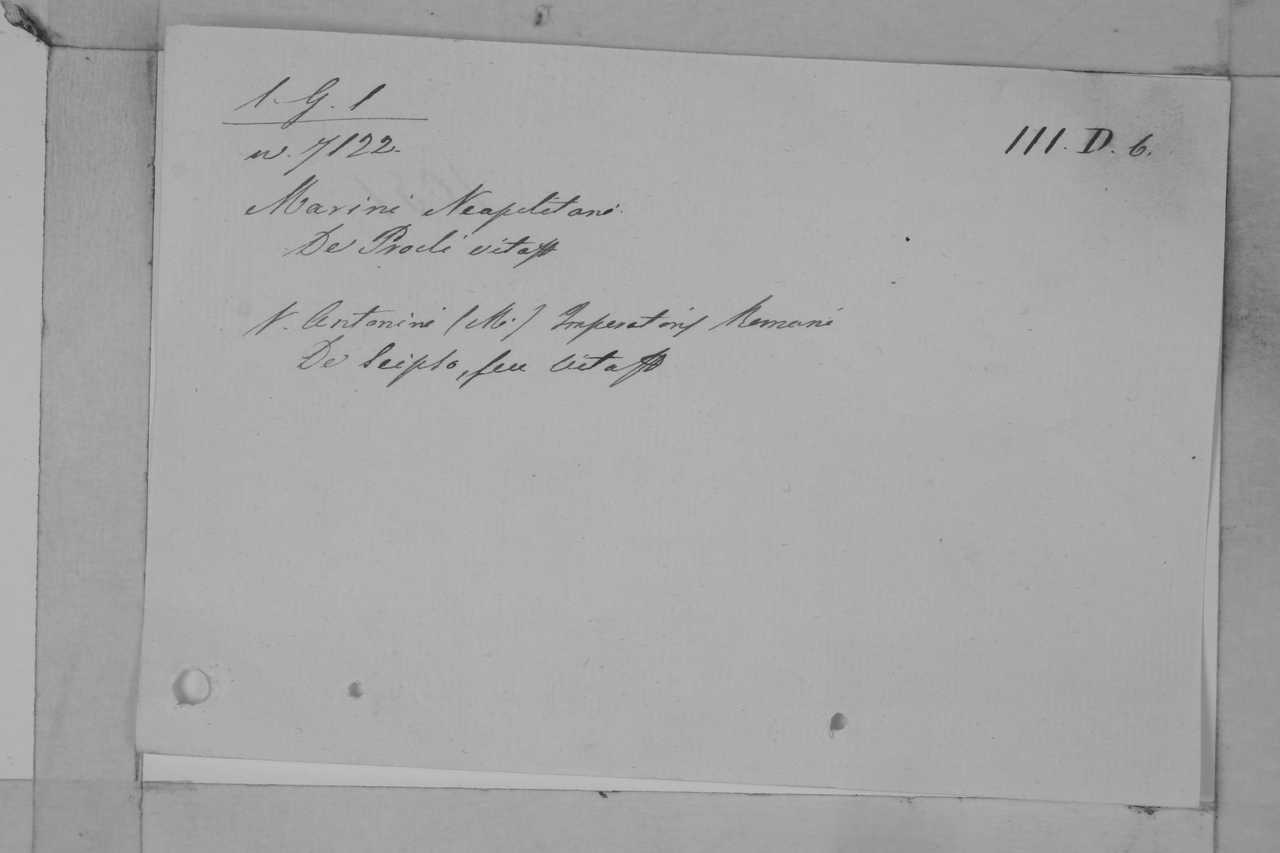 1. G. 1
III. D. 6.
n. 7122.
Marini Neapolitani
De Procli vita
V. Antonini (M.) Imperatoris Romani
De Seipso, seu Vita